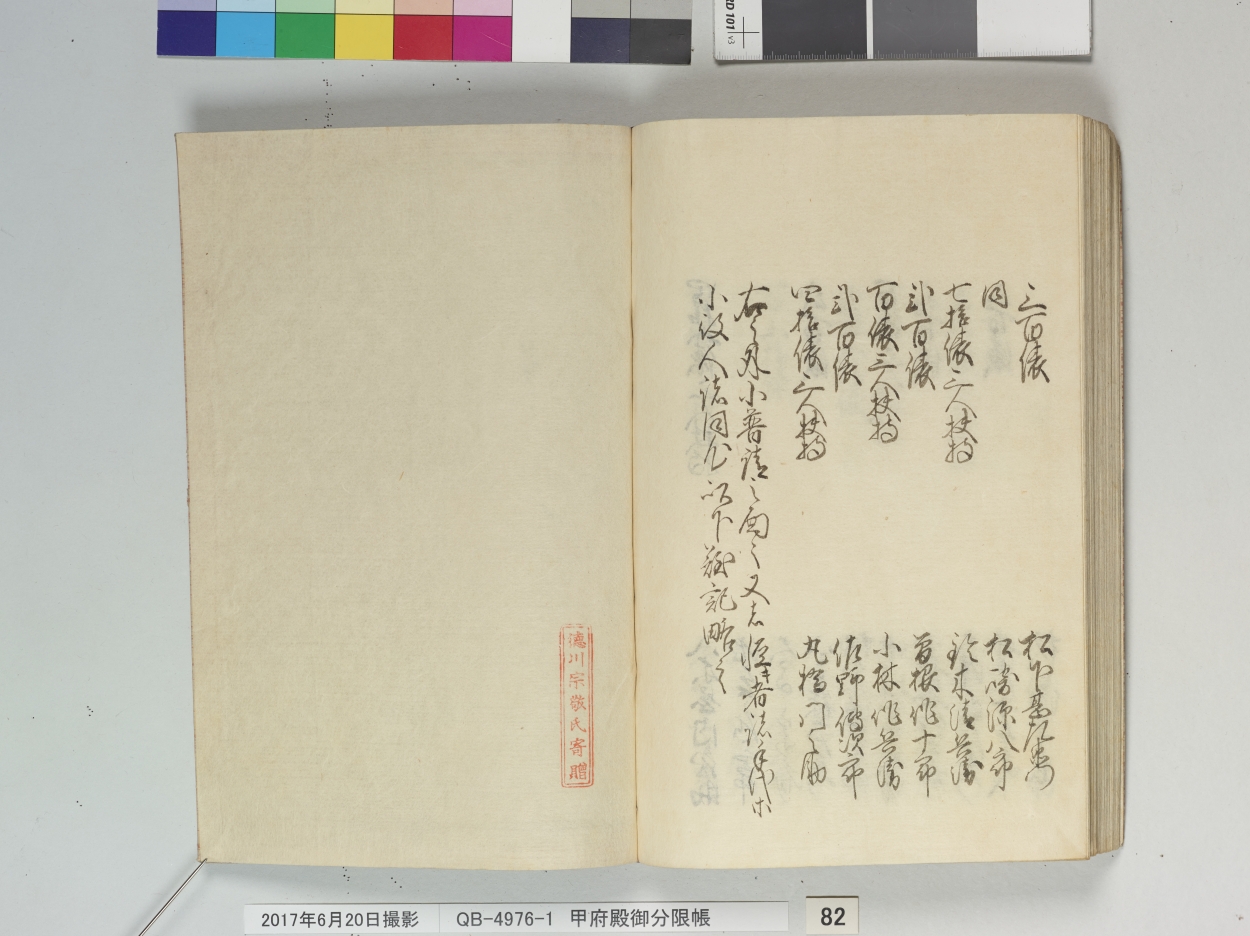 三百俵
松下甚左衛門
同
松崎源八郎
七拾俵三人扶持
鈴木清兵衛
弐百俵
曽根作十郎
百俵三人扶持
小林作兵衛
弐百俵
佐野伝次郎
四拾俵三人扶持
丸橋門之助
右之月小普請之面々又者
者諸手代等
小役人諸同心以下難記略之
徳川宗敬氏寄贈
2017年6月20日撮影 QB-4976-1 甲府殿御分限帳
82